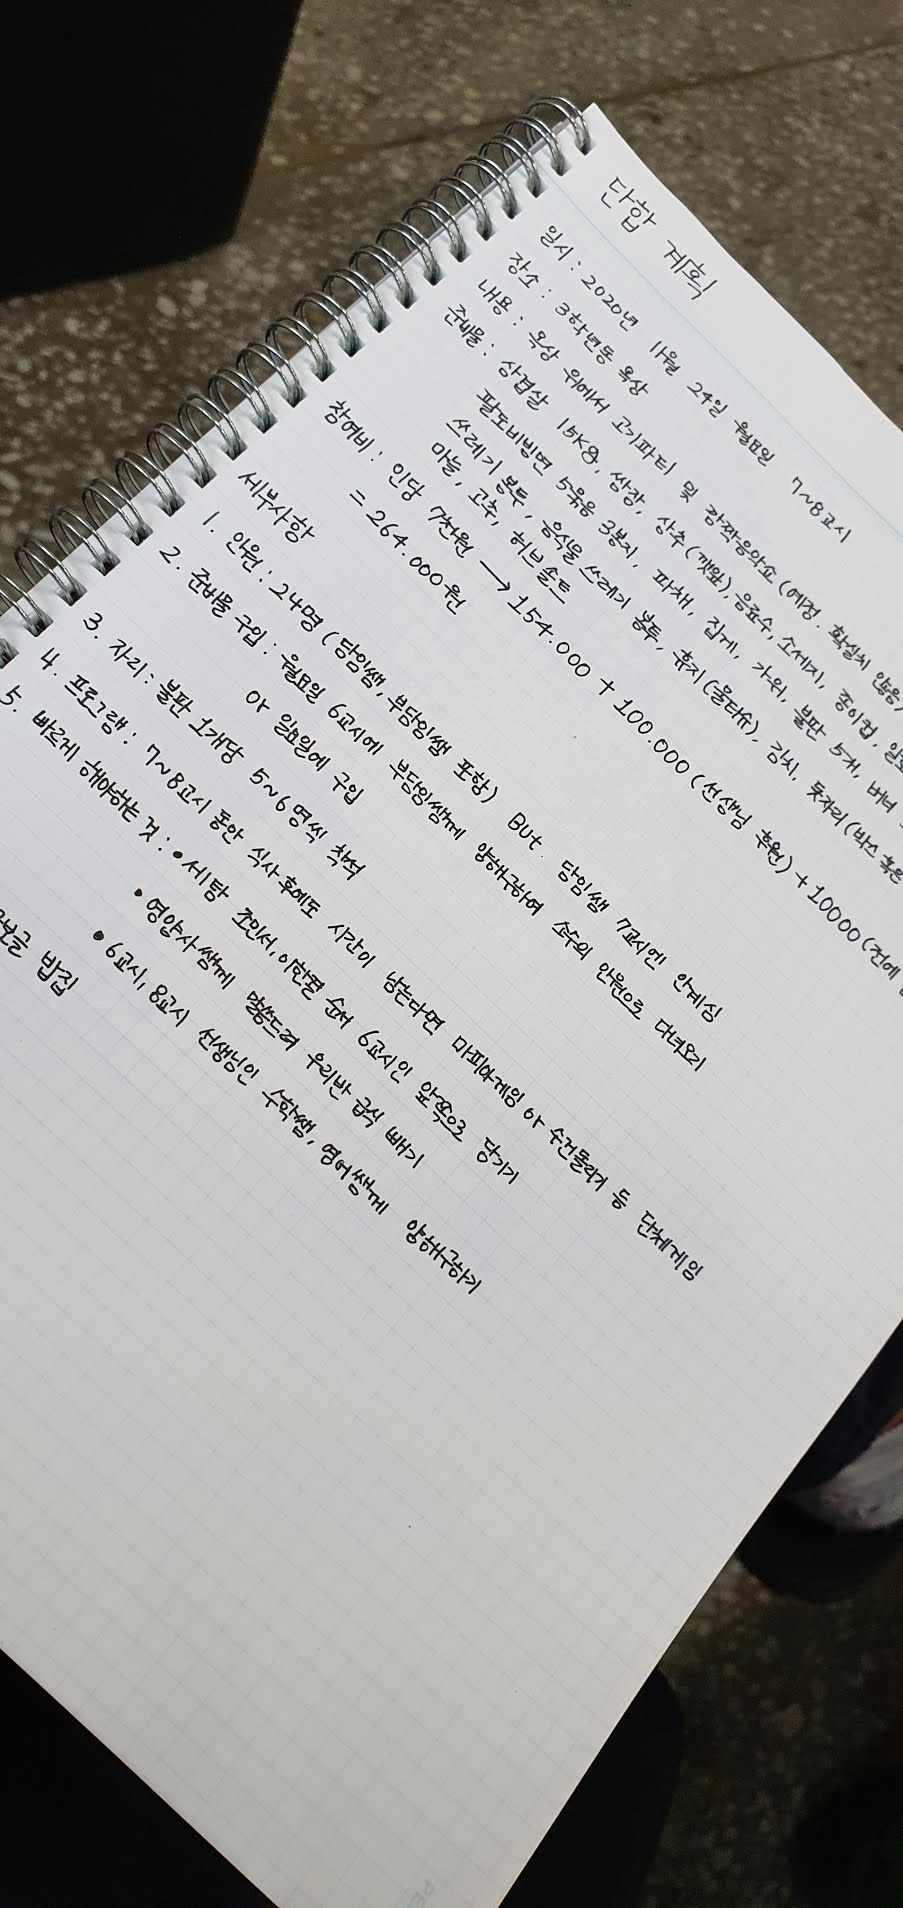 단합 계획
일시 : 2020년 11월 24일 월요일 7~8교시
장소 : 3학년동 옥상
내용 : 옥상 위에서 고기파티 및 깜짝음악쇼 (예정. 확실치 않음)
준비물 : 삼겹살 15KG, 쌈장, 상추 (깻잎), 음료수, 소세지, 종이컵,
팔도비빔면 5묶음 3봉지, 파채, 집게, 가위, 불판 5개, 버너
쓰레기 봉투, 음식물 쓰레기 봉투, 휴지 (물티슈), 김치, 돗자리 (박스 혹은
마늘, 고추, 허브솔트
참여비 : 인당 7천원 → 154.000 + 100.000 (선생님 후원) + 10000 (전에
= 264.000원
세부사항
1. 인원 : 24명 (담임쌤, 부담임쌤 포함) But 담임쌤 7교시엔 안계심
2. 준비물 구입 : 월요일 6교시에 부담임쌤께 양해구하여 소수의 인원으로 다녀오기
or 일요일에 구입
3. 자리 : 불판 1개당 5~6명씩 착석
4. 프로그램 : 7~8교시 동안 식사 후에도 시간이 남는다면 마피아게임 or 수건돌리기 등 단체게임
5. 빠르게 해야하는 것 : • 세탐 조인서, 이한결 순서 6교시인 앞쪽으로 당기기
• 영양사쌤께 말씀드려 우리반 급식 빼기
• 6교시, 8교시 선생님인 수학쌤, 영어쌤께 양해구하기
밥집